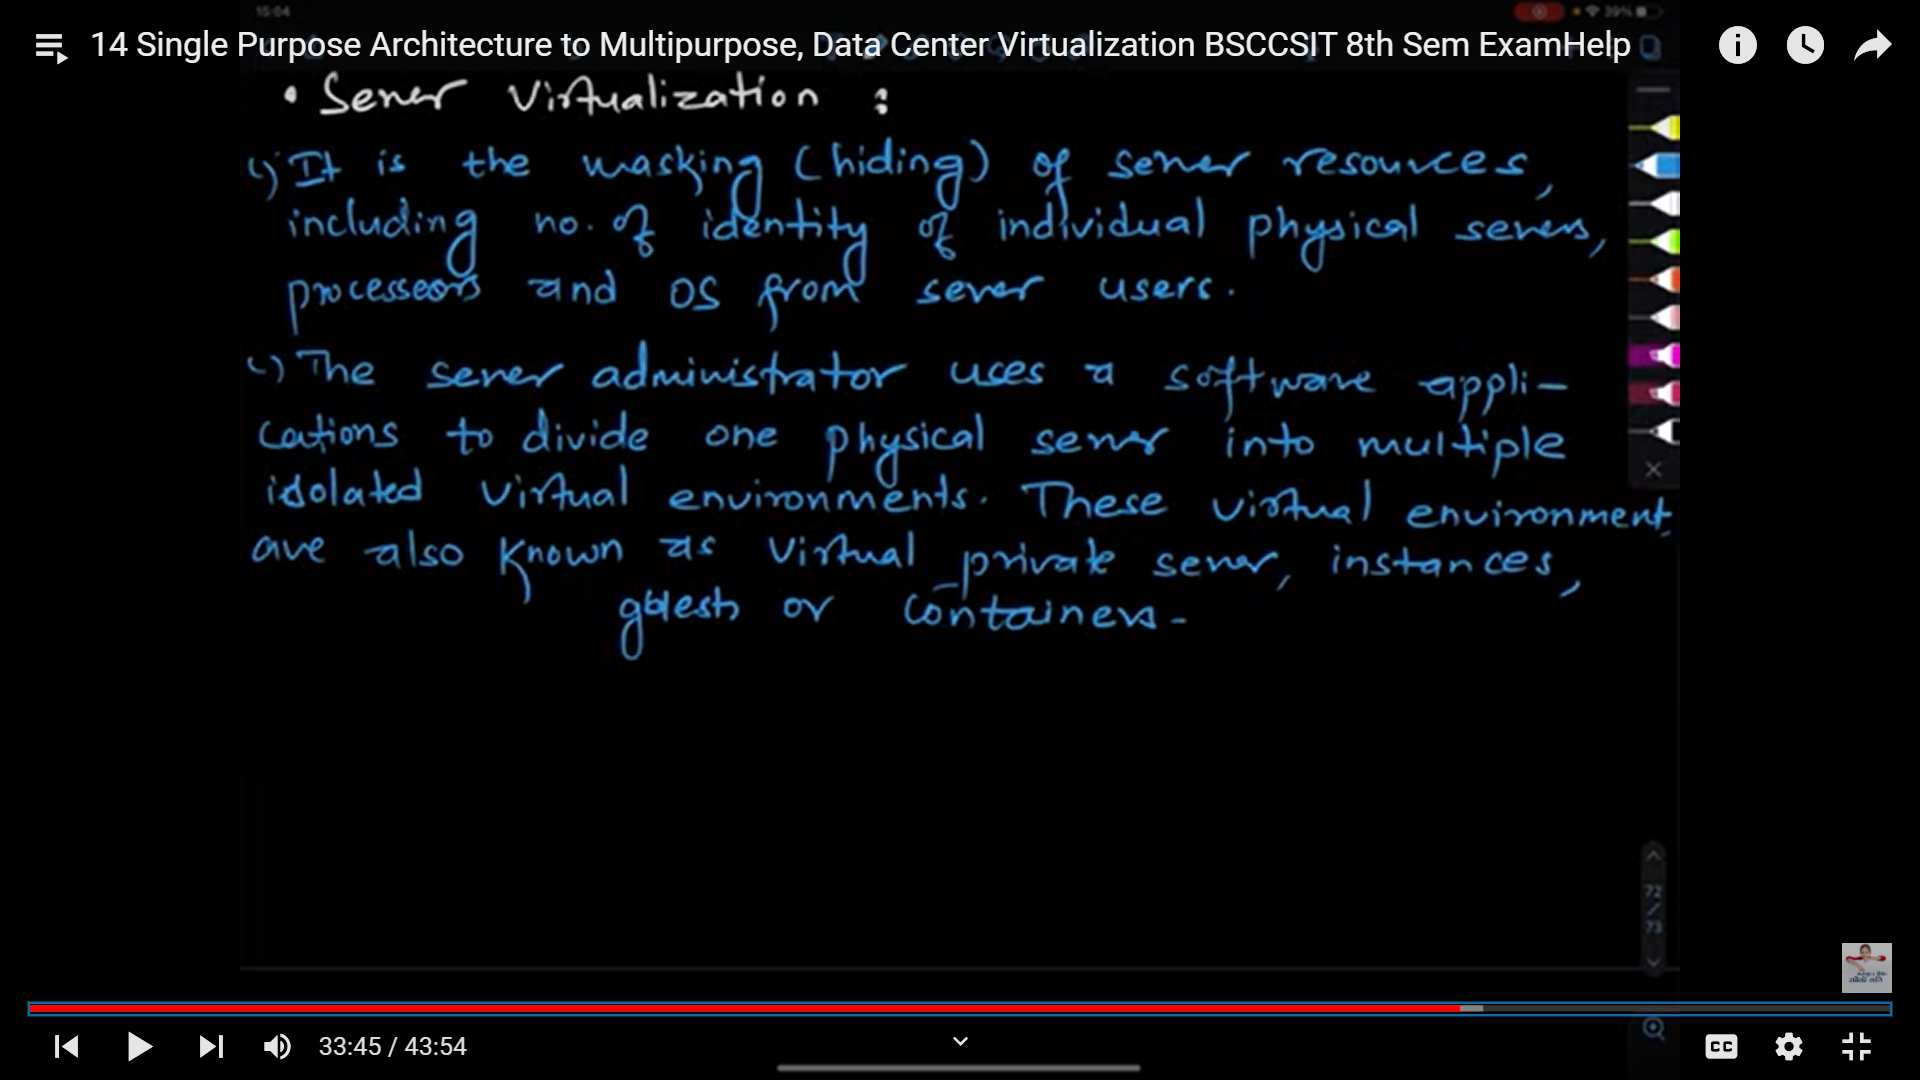 15:04
39%
14 Single Purpose Architecture to Multipurpose, Data Center Virtualization BSCCSIT 8th Sem ExamHelp
• Server Virtualization :
It is the masking (hiding) of server resources,
including no. of identity of individual physical servers,
processors and OS from server users.
The server administrator uses a software appli-
cations to divide one physical server into multiple
isolated virtual environments. These virtual environment
are also known as virtual private server, instances,
guests or containers.
72
/
73
33:45 / 43:54
CC